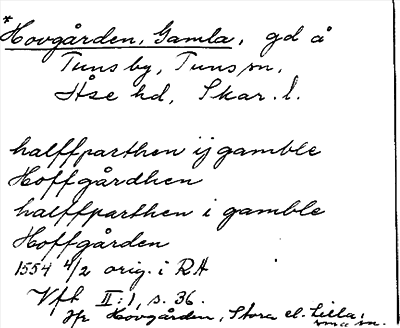 *
Hovgården, Gamla, gd å
Tunsby, Tuns sn,
Åse hd, Skar. l.
halffparthen ij gamble
Hoffgårdhen
halffparthen i gamble
Hoffgården
1554 4/2 orig. i RA
Vfk II:1, s. 36.
Jfr Hovgården, Stora el. Lilla,
sma sn.